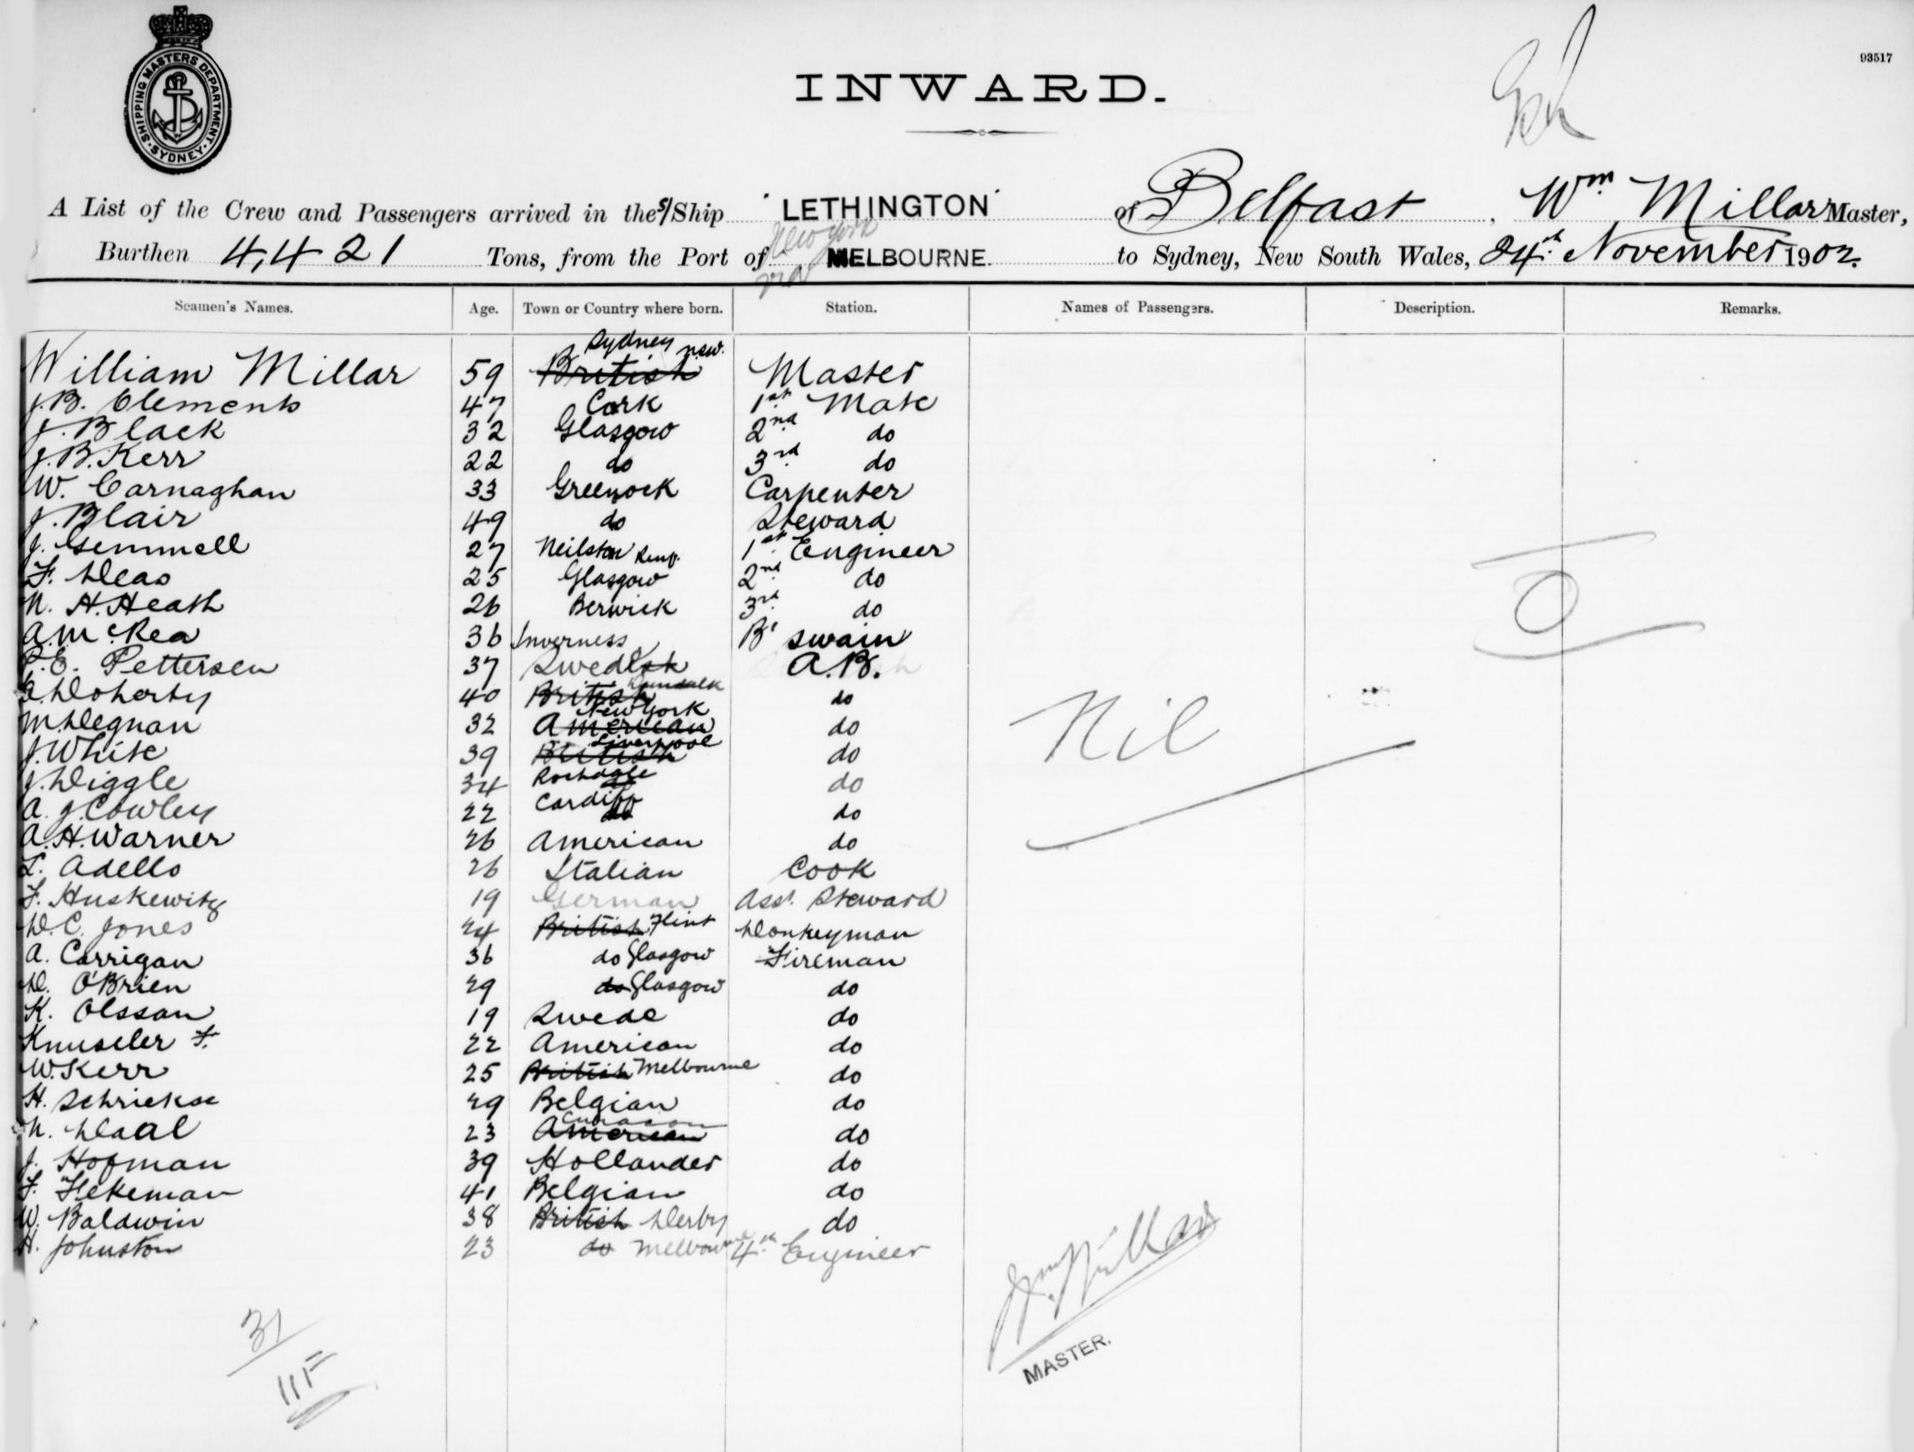 SHIPPING MASTERS DEPARTMENT. SYDNEY.
93517
INWARD.
A List of the Crew and Passengers arrived in the S/Ship 'LETHINGTON' of Belfast, Wm Millar Master,
Burthen 4,421 Tons, from the Port of New York via MELBOURNE. to Sydney, New South Wales, 24th November 1902.
Seamen's Names. Age. Town or Country where born. Station. Names of Passengers. Description. Remarks.
William Millar 59 British Sydney NSW. Master
J.B. Clements 47 Cork 1st Mate
J. Black 32 Glasgow 2nd do
J.B. Kerr 22 do 3rd do
W. Carnaghan 33 Greenock Carpenter
J. Blair 49 do Steward
J. Gemmell 27 Neilston Renf. 1st Engineer
F. Deas 25 Glasgow 2nd do
N. H. Heath 26 Berwick 3rd do
A. McRea 36 Inverness Bo swain
P.E. Pettersen 37 Swedish A.B.
Doherty 40 British Dundalk do
M. Degnan 32 American New York do
J. White 39 British Liverpool do
J. Diggle 34 do Rochdale do
A. J. Cowley 22 do Cardiff do
A.H. Warner 26 American do
L. Adello 26 Italian Cook
F. Huskewitz 19 German Asst. Steward
D.C. Jones 24 British Flint Donkeyman
A. Carrigan 36 do Glasgow Fireman
D. O'Brien 29 do Glasgow do
K. Olsson 19 Swede do
Knuseler F. 22 American do
W. Kerr 25 British Melbourne do
H. Schriekse 29 Belgian do
N. Daal 23 American Curacao do
J. Hofman 39 Hollander do
F. Fekeman 41 Belgian do
W. Baldwin 38 British Derby do
H. Johnston 23 do Melbourne 4th Engineer
Nil
O
31
11F
Wm Millar
MASTER.